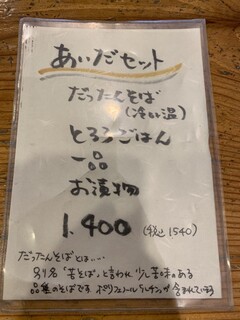 あいだセット
だったんそば
(冷い温)
とろろごはん
一品
お漬物
1.400 (税込1540)
だったんそばとは‥‥
別名「苦そば」と言われ 少し苦味のある
品種のそばです ポリフェノール ルチンが 含まれています